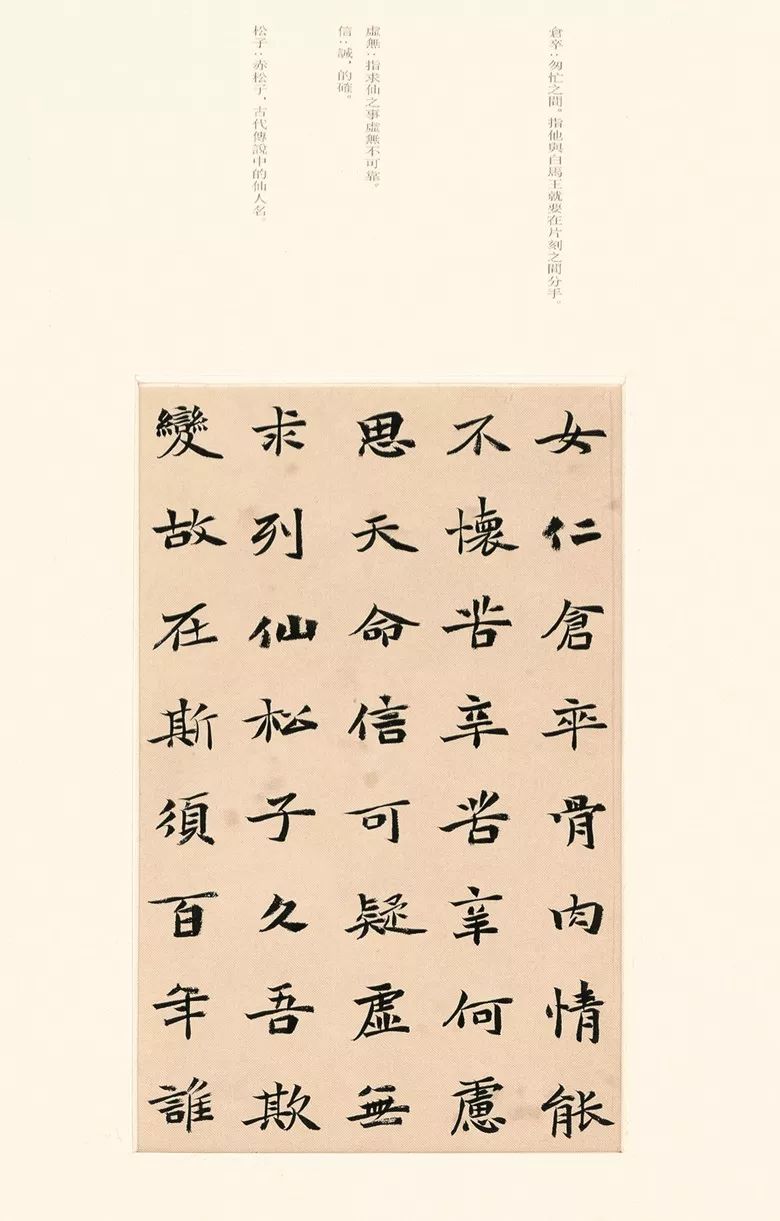 倉卒：匆忙之間。指他與白馬王就要在片刻之間分手。
虛無：指求仙之事虛無不可靠。
信：誠，的確。
松子：赤松子，古代傳說中的仙人名。
女仁倉卒骨肉情能
不懷苦辛苦辛何慮
思天命信可疑虛無
求列仙松子久吾欺
變故在斯須百年誰